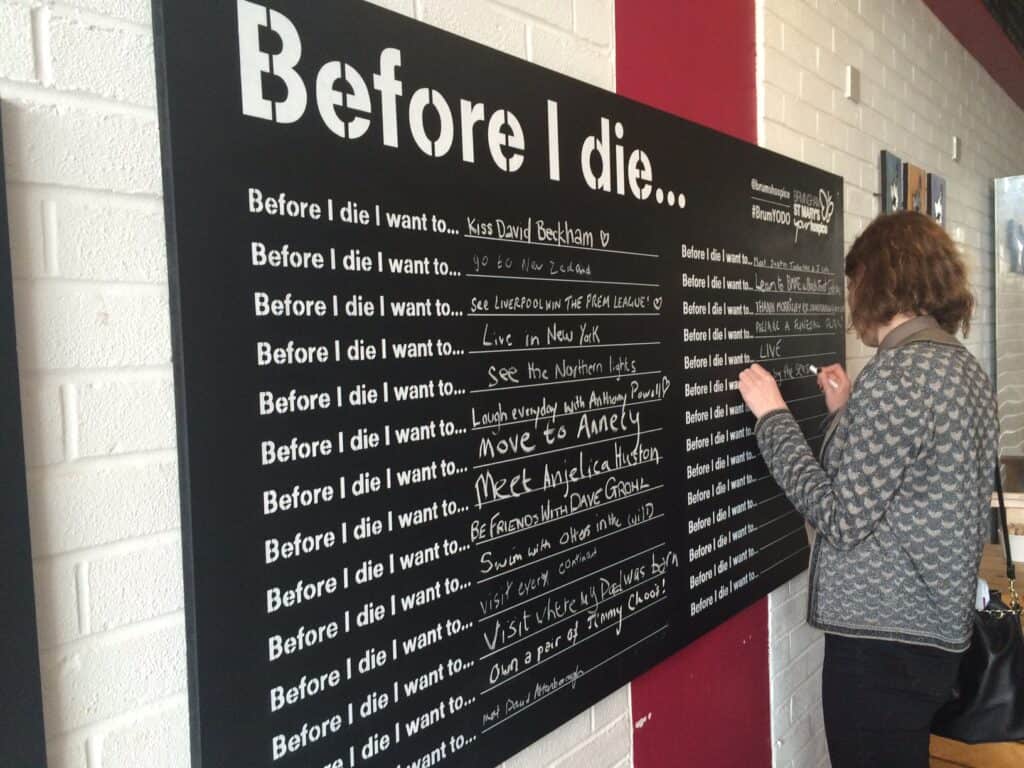 Before I die...
Before I die I want to... Kiss David Beckham ♡
Before I die I want to... go to New Zealand
Before I die I want to... See LIVERPOOL WIN THE PREM LEAGUE! ♡
Before I die I want to... Live in New York
Before I die I want to... See the Northern lights
Before I die I want to... Laugh everyday with Anthony Powell ♡
Before I die I want to... Move to Annecy
Before I die I want to... Meet Anjelica Huston
Before I die I want to... BE FRIENDS WITH DAVE GROHL
Before I die I want to... Swim with otters in the wild
Before I die I want to... visit every continent
Before I die I want to... Visit where My Dad was born
Before I die I want to... Own a pair of Jimmy Choos!
Before I die I want to... meet David Attenborough
@brumshospice
#BrumYODO
BIRMINGHAM
ST MARY'S
your hospice
Before I die I want to... Meet Justin Timberlake
Before I die I want to... Learn to
Before I die I want to... THANK MORRISSEY
Before I die I want to... ARRANGE A FUNERAL PLAN
Before I die I want to... LIVE
Before I die I want to... by the sea
Before I die I want to...
Before I die I want to...
Before I die I want to...
Before I die I want to...
Before I die I want to...
Before I die I want to...
Before I die I want to...
Before I die I want to...